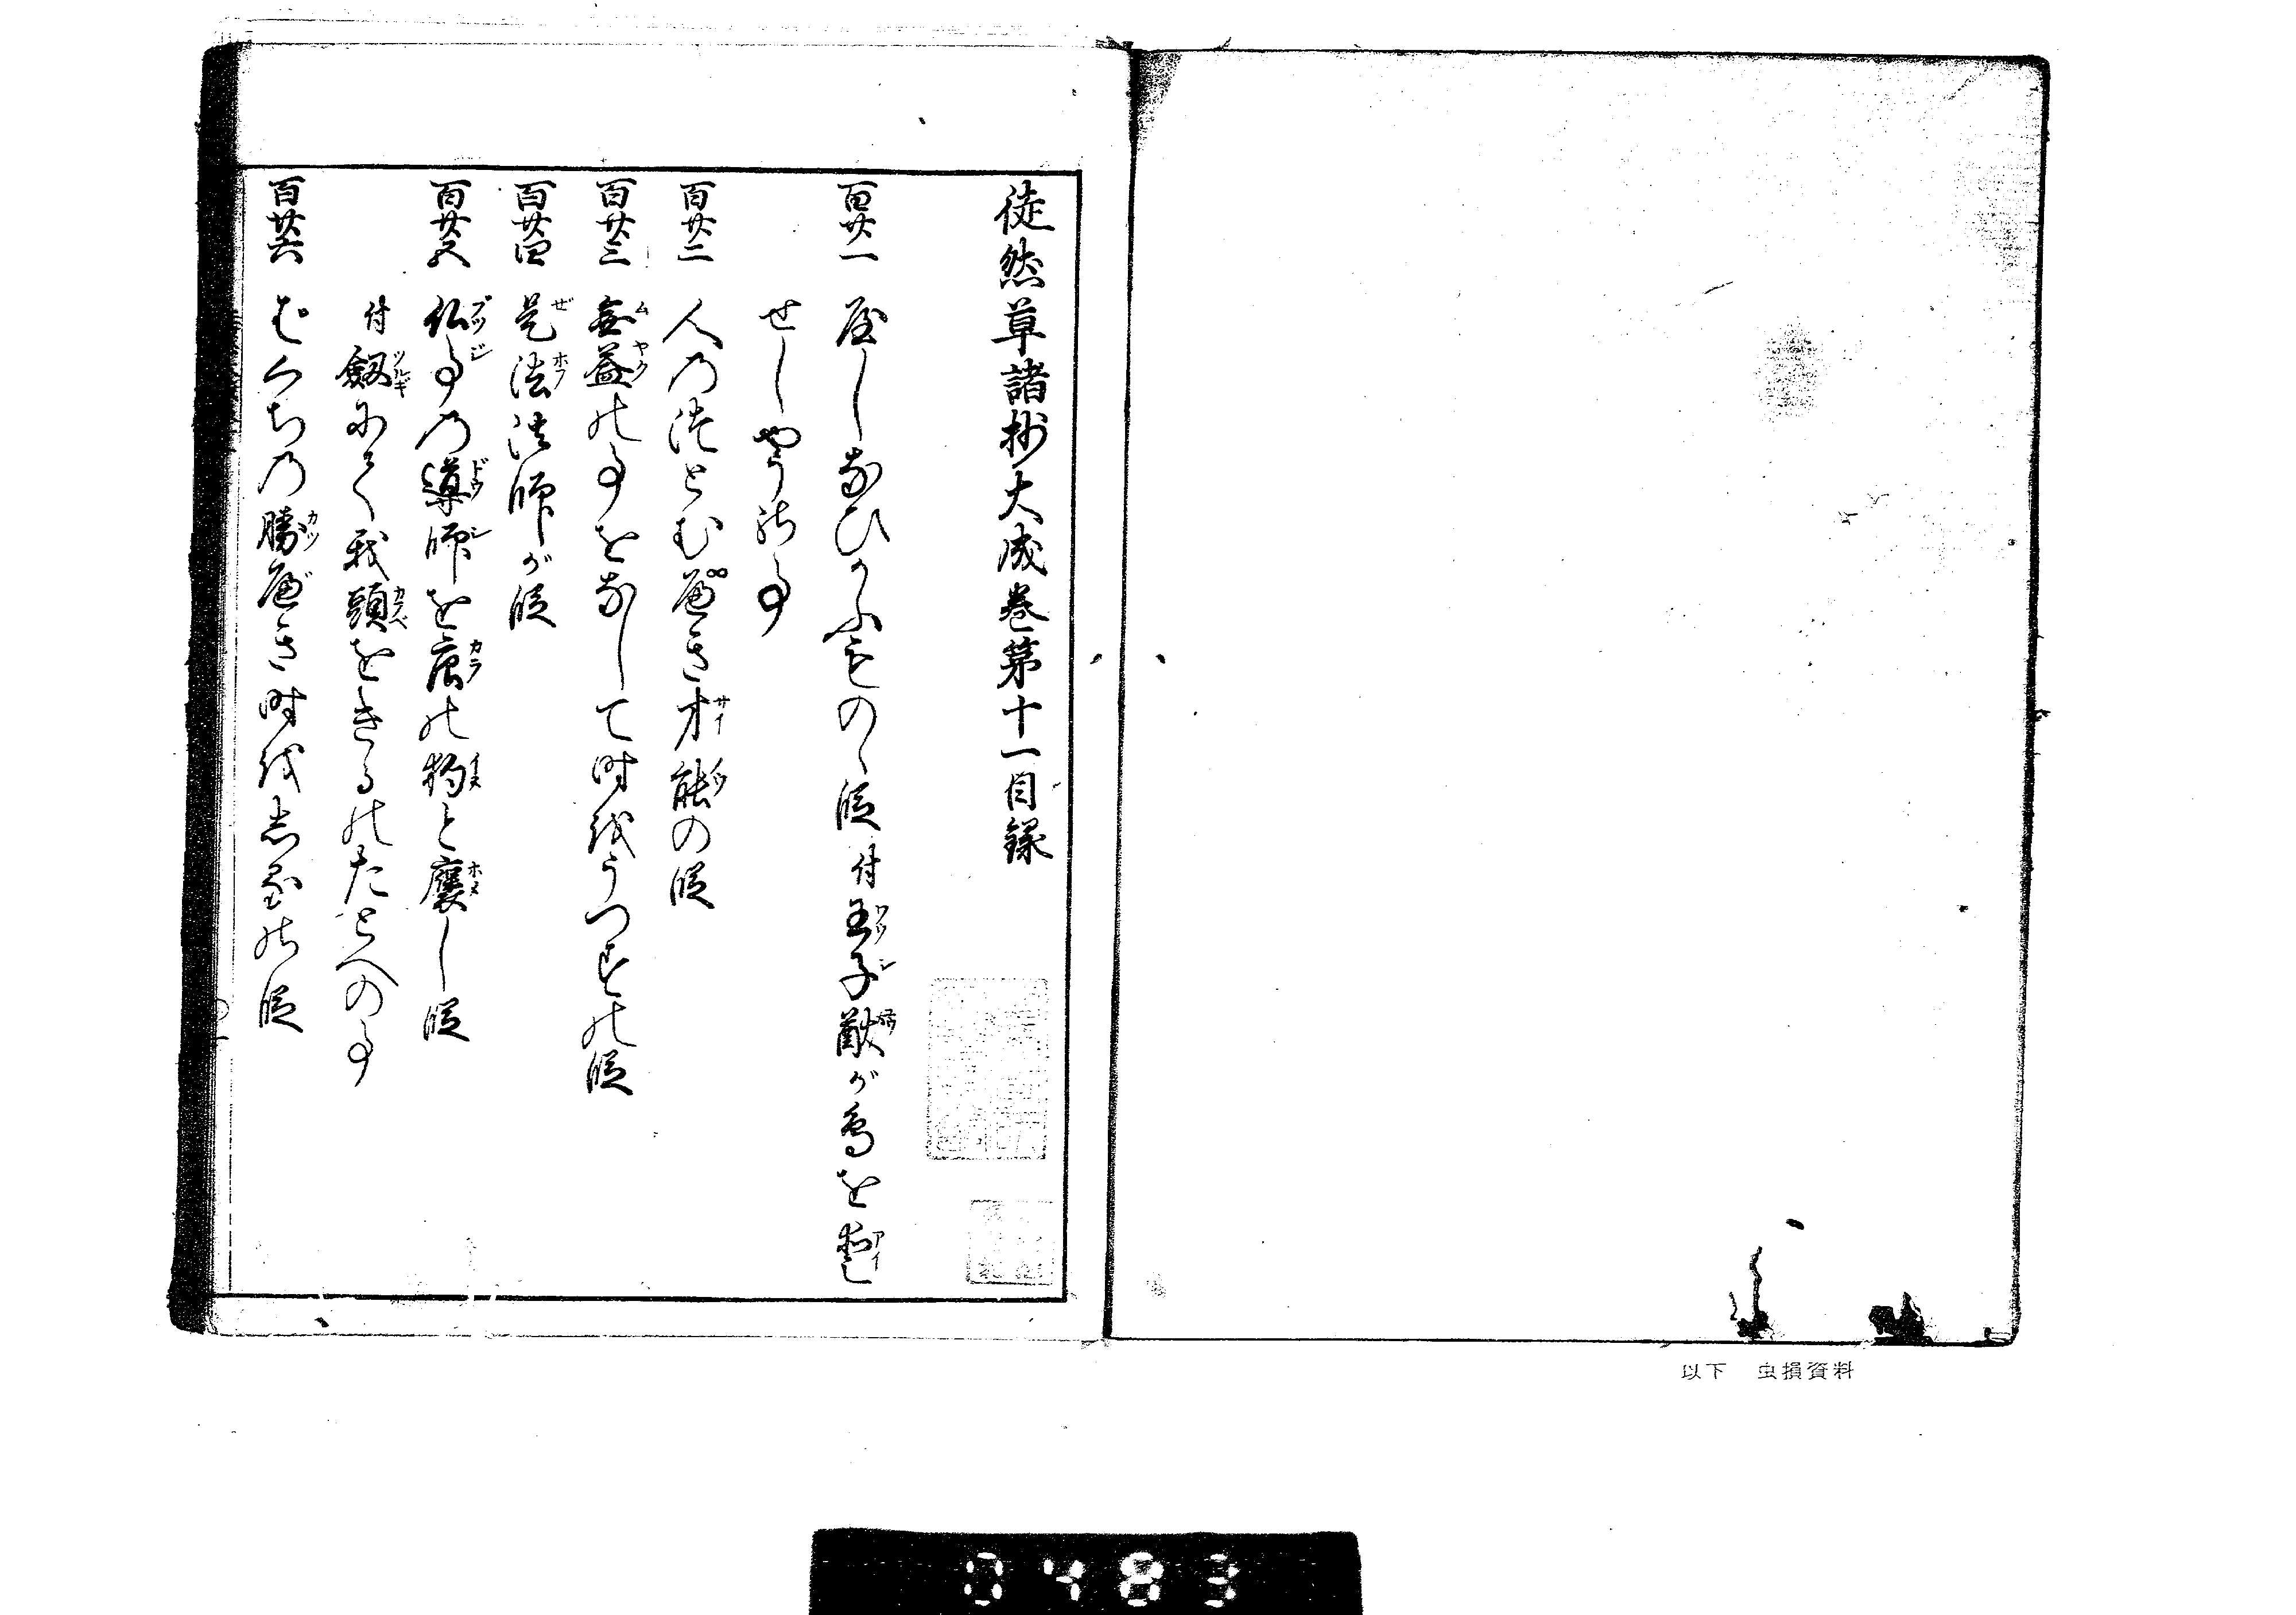 徒然草諸抄大成巻第十一目録
百廿一 やしなひかふものゝ段 付王子猷が鳥を愛
せしやうの事
百廿二 人のつとむべき才能の段
百廿三 無益の事をなして時をうつすの段
百廿四 是法法師が段
百廿五 仏事の導師を唐の狗と褒し段
付 劔にて我頭をきるのたとへの事
百廿六 ばくちの勝べき時をしるの段
以下 虫損資料
0483